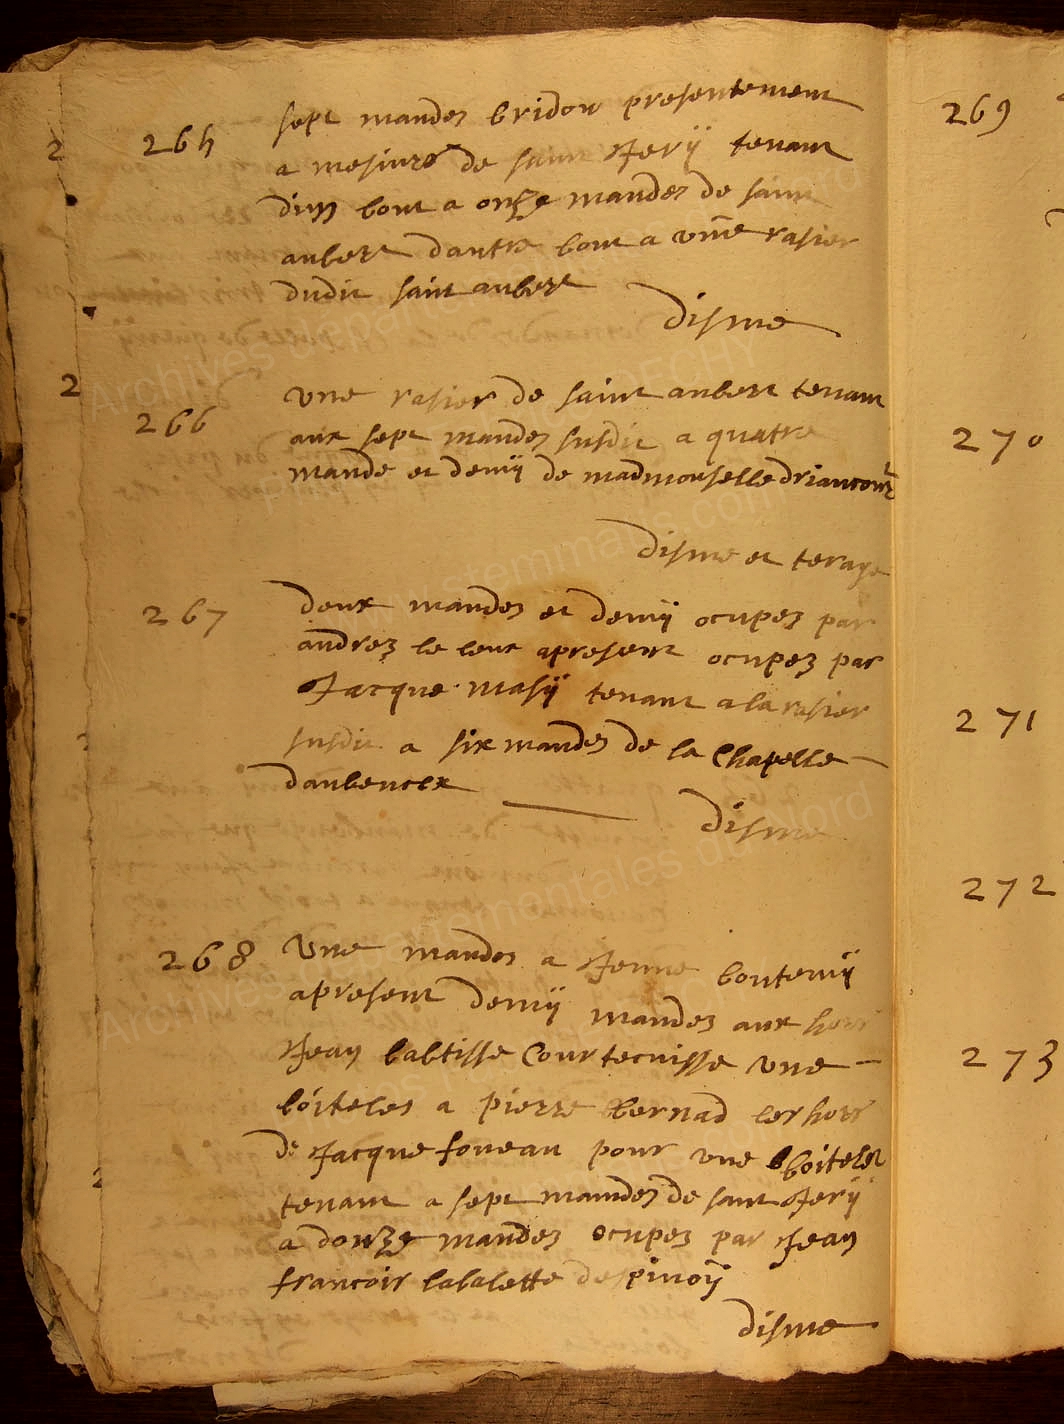 265 sept mandez bridou presentement
a mesiurs de saint Jerÿ tenant
dun bout a onze mandez de saint
aubert dautre bout a une rasier
dudit saint aubert
disme
266 une rasier de saint aubert tenant
aux sept mandez susdit a quatre
mande et demÿ de madmouselle driancour
disme et terage
267 deux mandez et demÿ ocupez par
andrez le leux apresent ocupez par
Jacque masÿ tenant a la rasier
susdit a six mandez de la Chapelle
daubencex
disme
268 Une mandez a Jenne boutemÿ
apresent demÿ mandez aux hoirs
Jean babtisse Courtecuisse une
boiteles a pierre bernad les hoirs
de Jacque foueau pour une boiteles
tenant a sept mandez de saint Jerÿ
a douze mandez ocupez par Jean
francoir labalette despinoÿ
disme
269
270
271
272
273